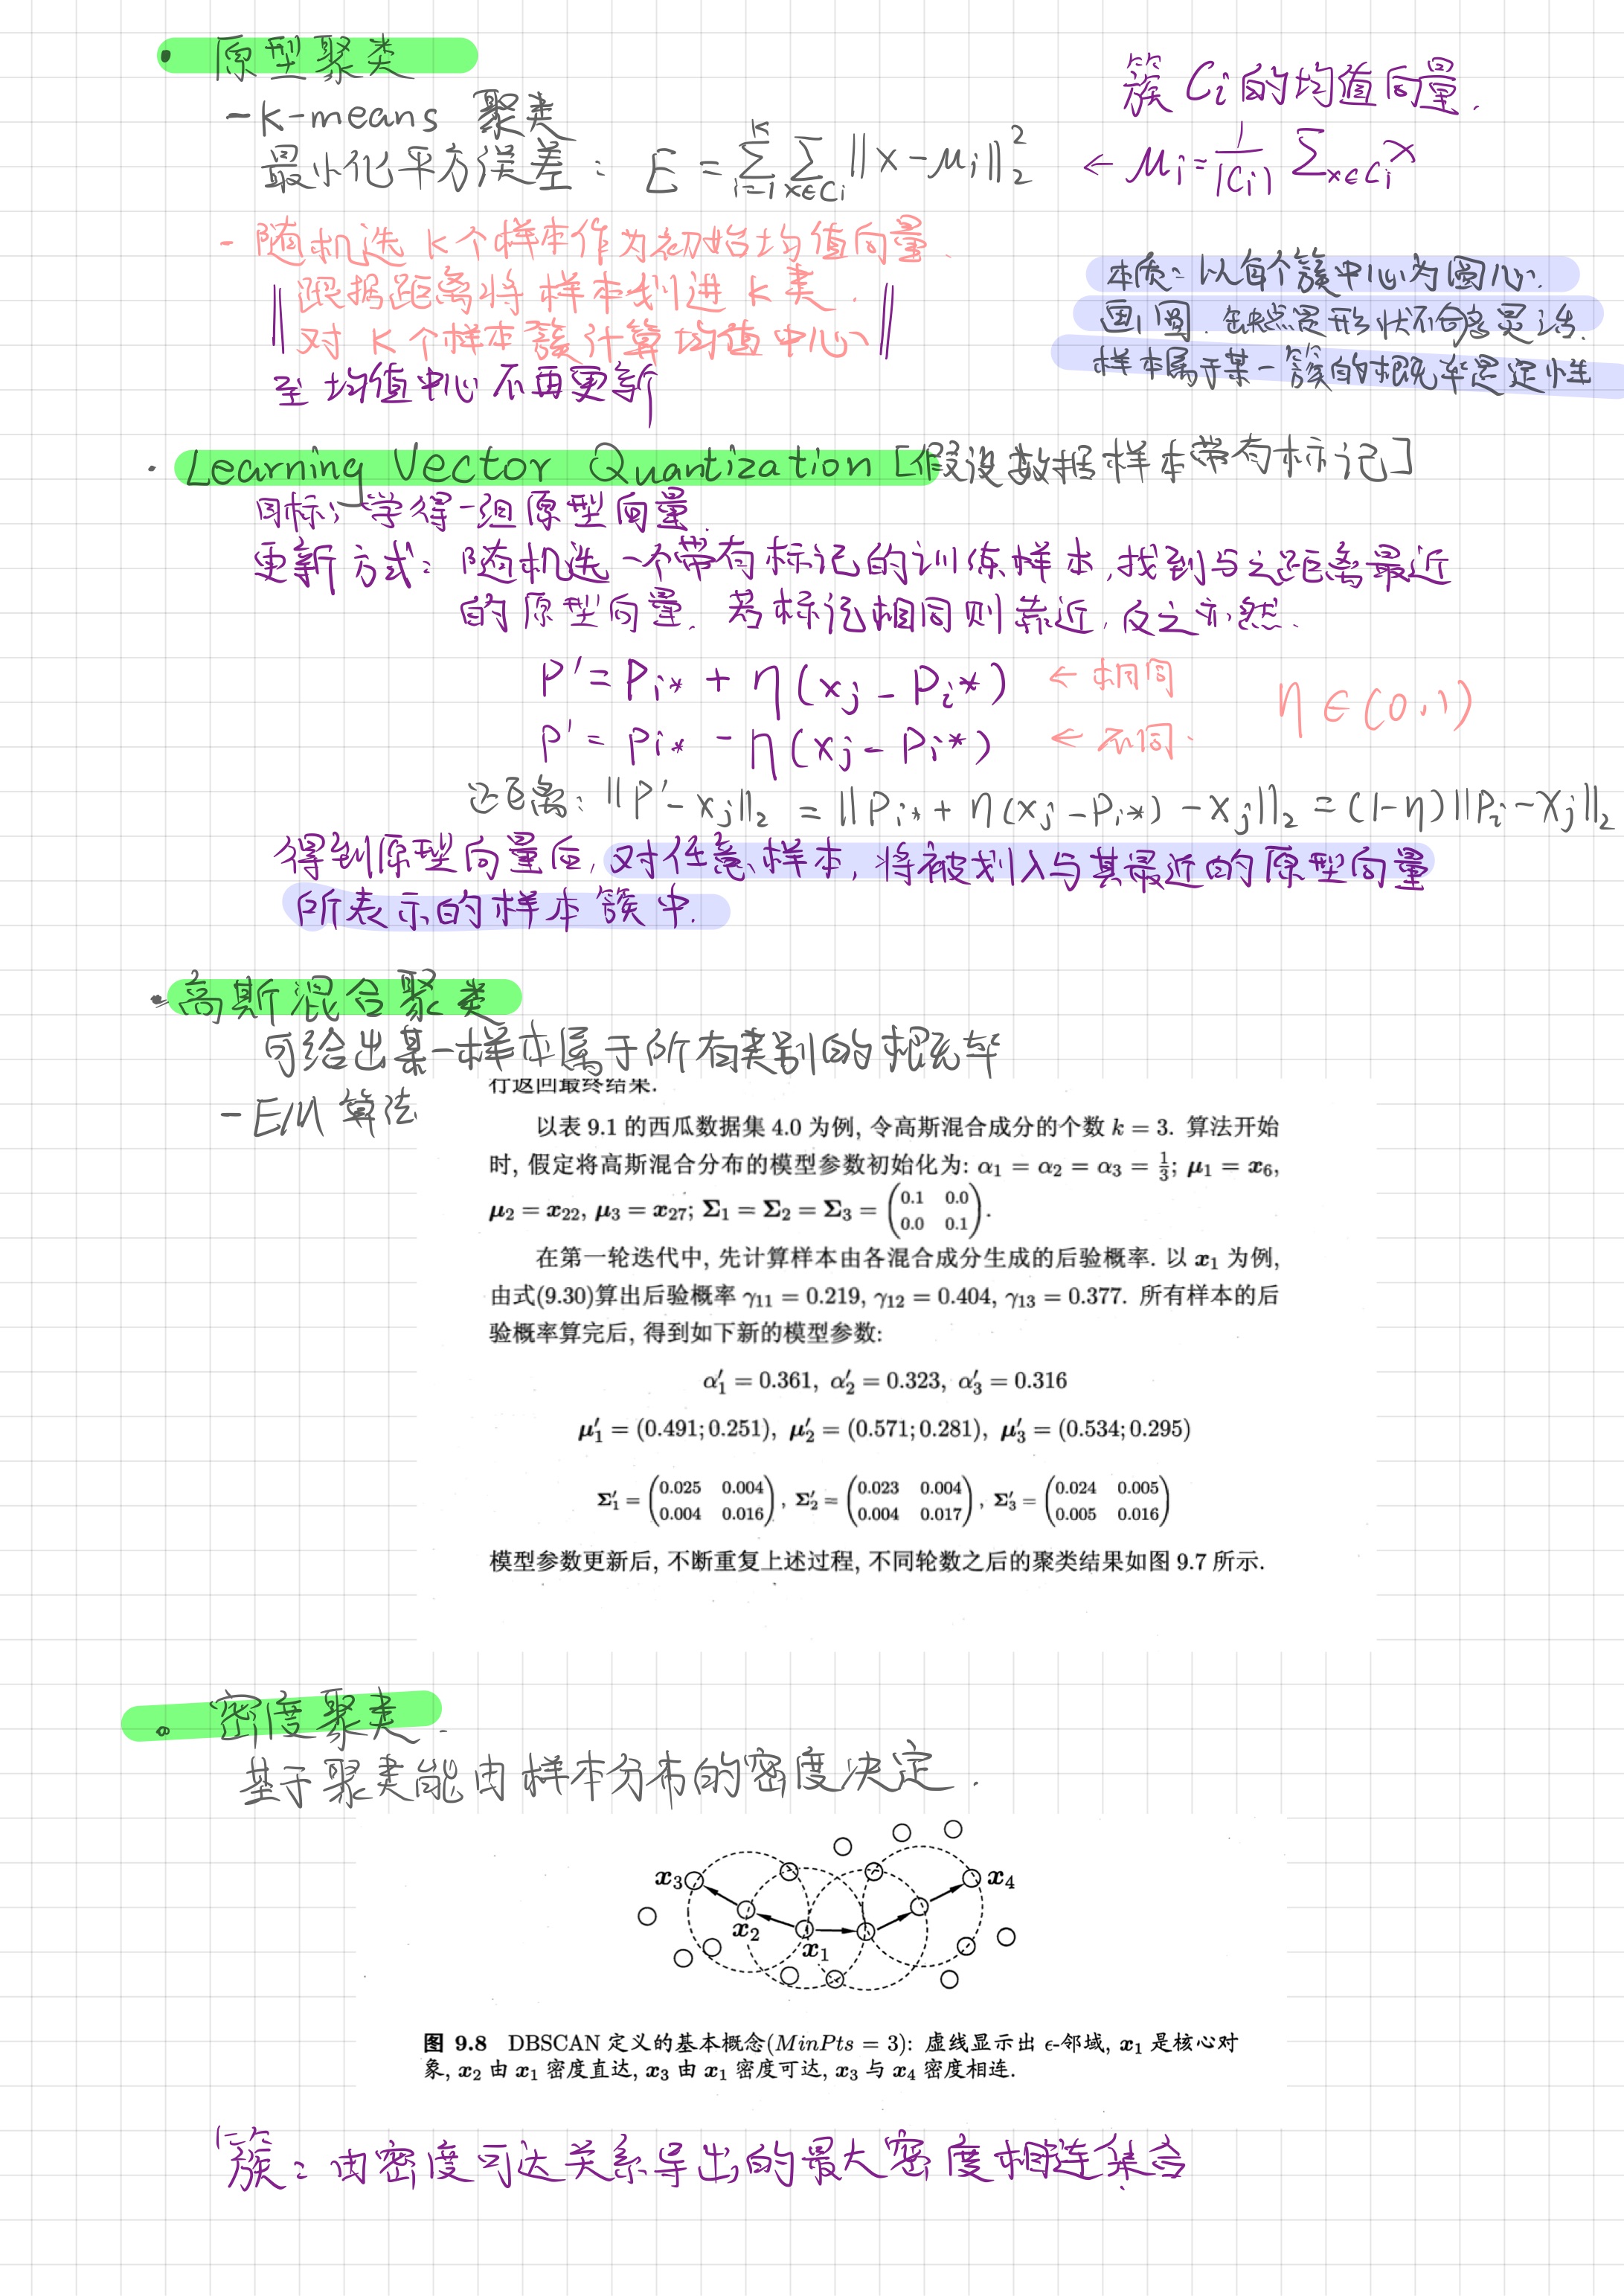 · 原型聚类
- K-means 聚类
簇 Ci 的均值向量.
最小化平方误差: E = Σ_{i=1}^{K} Σ_{x∈Ci} ||x-μi||₂² ← μi = 1/|Ci| Σ_{x∈Ci} x
- 随机选 K个样本作为初始均值向量.
跟据距离将样本划进 K类.
对 K个样本簇计算均值中心
至均值中心不再更新
本质: 以每个簇中心为圆心.
画圆. 缺点是形状不够灵活.
样本属于某一簇的概率是定性
· Learning Vector Quantization [假设数据样本带有标记]
目标: 学得一组原型向量.
更新方式: 随机选一个带有标记的训练样本, 找到与之距离最近
的原型向量. 若标记相同则靠近, 反之亦然.
P' = Pi* + η(xj - Pi*) ← 相同
η∈(0,1)
P' = Pi* - η(xj - Pi*) ← 不同.
距离: ||P'-xj||₂ = ||Pi* + η(xj-Pi*) - xj||₂ = (1-η)||Pi-Xj||₂
得到原型向量后, 对任意样本, 将被划入与其最近的原型向量
所表示的样本簇中.
· 高斯混合聚类
可给出某一样本属于所有类别的概率
- EM 算法
行返回最终结果.
以表 9.1 的西瓜数据集 4.0 为例, 令高斯混合成分的个数 k = 3. 算法开始
时, 假定将高斯混合分布的模型参数初始化为: α₁ = α₂ = α₃ = 1/3; μ₁ = x₆,
μ₂ = x₂₂, μ₃ = x₂₇; Σ₁ = Σ₂ = Σ₃ = (0.1 0.0; 0.0 0.1).
在第一轮迭代中, 先计算样本由各混合成分生成的后验概率. 以 x₁ 为例,
由式(9.30)算出后验概率 γ₁₁ = 0.219, γ₁₂ = 0.404, γ₁₃ = 0.377. 所有样本的后
验概率算完后, 得到如下新的模型参数:
α′₁ = 0.361, α′₂ = 0.323, α′₃ = 0.316
μ′₁ = (0.491; 0.251), μ′₂ = (0.571; 0.281), μ′₃ = (0.534; 0.295)
Σ′₁ = (0.025 0.004; 0.004 0.016), Σ′₂ = (0.023 0.004; 0.004 0.017), Σ′₃ = (0.024 0.005; 0.005 0.016)
模型参数更新后, 不断重复上述过程, 不同轮数之后的聚类结果如图 9.7 所示.
· 密度聚类.
基于聚类能由样本分布的密度决定.
x₃ x₄
x₂ x₁
图 9.8 DBSCAN 定义的基本概念(MinPts = 3): 虚线显示出 ϵ-邻域, x₁ 是核心对
象, x₂ 由 x₁ 密度直达, x₃ 由 x₁ 密度可达, x₃ 与 x₄ 密度相连.
簇: 由密度可达关系导出的最大密度相连集合